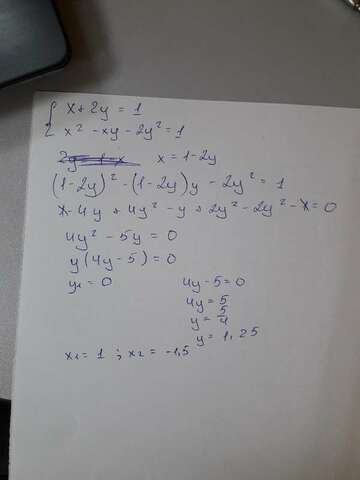 { x + 2y = 1
x² - xy - 2y² = 1
2y = 1 - x x = 1-2y
(1-2y)² - (1-2y)y - 2y² = 1
1 - 4y + 4y² - y + 2y² - 2y² - 1 = 0
4y² - 5y = 0
y(4y-5) = 0
y₁ = 0 4y-5=0
4y = 5
y = 5/4
y = 1,25
x₁ = 1 ; x₂ = -1,5